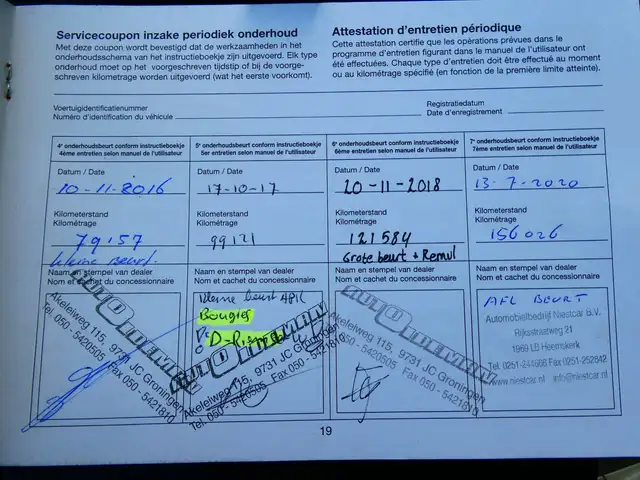 Servicecoupon inzake periodiek onderhoud
Met deze coupon wordt bevestigd dat de werkzaamheden in het
onderhoudsschema van het instructieboekje zijn uitgevoerd. Elk type
onderhoud moet op het voorgeschreven tijdstip of bij de voorge-
schreven kilometrage worden uitgevoerd (wat het eerste voorkomt).
Attestation d'entretien périodique
Cette attestation certifie que les opérations prévues dans le
programme d'entretien figurant dans le manuel de l'utilisateur ont
été effectuées. Chaque type d'entretien doit être effectué au moment
ou au kilométrage spécifié (en fonction de la première limite atteinte).
Voertuigidentificatienummer
Numéro d'identification du véhicule
Registratiedatum
Date d'enregistrement
4e onderhoudsbeurt conform instructieboekje
4ème entretien selon manuel de l'utilisateur
Datum / Date
10-11-2016
Kilometerstand
Kilométrage
79157
kleine beurt.
Naam en stempel van dealer
Nom et cachet du concessionnaire
AUTO IDEMAN
Akelelweg 115, 9731 JC Groningen
Tel. 050 - 5420505 Fax 050 - 5421810
5e onderhoudsbeurt conform instructieboekje
5er entretien selon manuel de l'utilisateur
Datum / Date
17-10-17
Kilometerstand
Kilométrage
99121
Naam en stempel van dealer
Nom et cachet du concessionnaire
kleine beurt APK
Bougies
AUTO IDEMAN
Akelelweg 115, 9731 JC Groningen
Tel. 050 - 5420505 Fax 050 - 5421810
6e onderhoudsbeurt conform instructieboekje
6ème entretien selon manuel de l'utilisateur
Datum / Date
20-11-2018
Kilometerstand
Kilométrage
121584
Grote beurt + Remvl
Naam en stempel van dealer
Nom et cachet du concessionnaire
AUTO IDEMAN
Akelelweg 115, 9731 JC Groningen
Tel. 050 - 5420505 Fax 050 - 5421810
7e onderhoudsbeurt conform instructieboekje
7ème entretien selon manuel de l'utilisateur
Datum / Date
13-7-2020
Kilometerstand
Kilométrage
156026
Naam en stempel van dealer
Nom et cachet du concessionnaire
AFL BEURT
Automobielbedrijf Niestcar B.V.
Rijksstraatweg 21
1969 LB Heemskerk
Tel. 0251-244666 Fax 0251-252842
www.niestcar.nl info@niestcar.nl
19